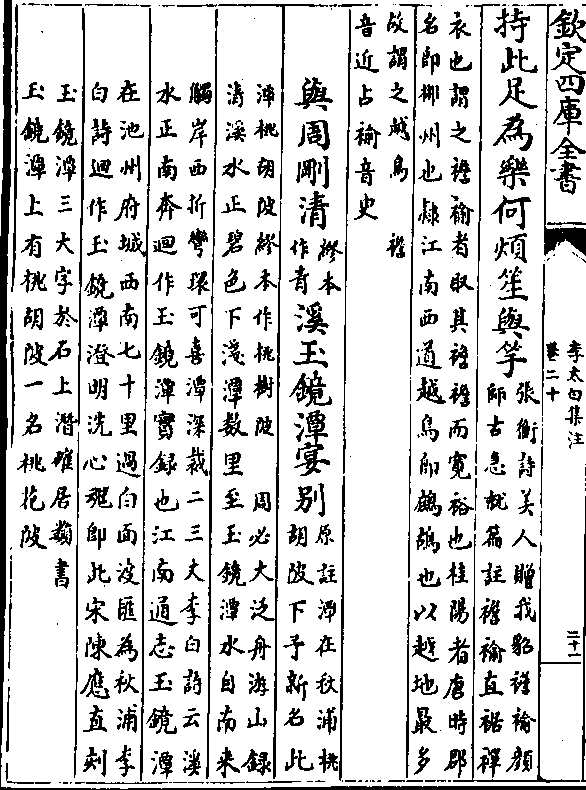 欽定四庫全書
李太白集注
卷二十
二十一
持此足為樂何煩笙與竽
張衡詩美人贈我貂襜褕顔
師古急就篇註襜褕直裾襌
衣也謂之襜褕者取其襜襜而寛裕也桂陽者唐時郡
名即郴州也隸江南西道越鳥即鷓鴣也以越地最多
故謂之越鳥 襜
音近占褕音史
與周剛清
繆本
作青
溪玉鏡潭宴别
原註潭在秋浦桃
胡陂下予新名此
潭桃胡陂繆本作桃樹陂 周必大泛舟游山録
清溪水正碧色下淺潭數里至玉鏡潭水自南來
觸岸西折彎環可喜潭深裁二三丈李白詩云溪
水正南奔迴作玉鏡潭實録也江南通志玉鏡潭
在池州府城西南七十里過白面渡匯為秋浦李
白詩迴作玉鏡潭澄明洗心魂即此宋陳應直刻
玉鏡潭三大字於石上潛確居類書
玉鏡潭上有桃胡陂一名桃花陂